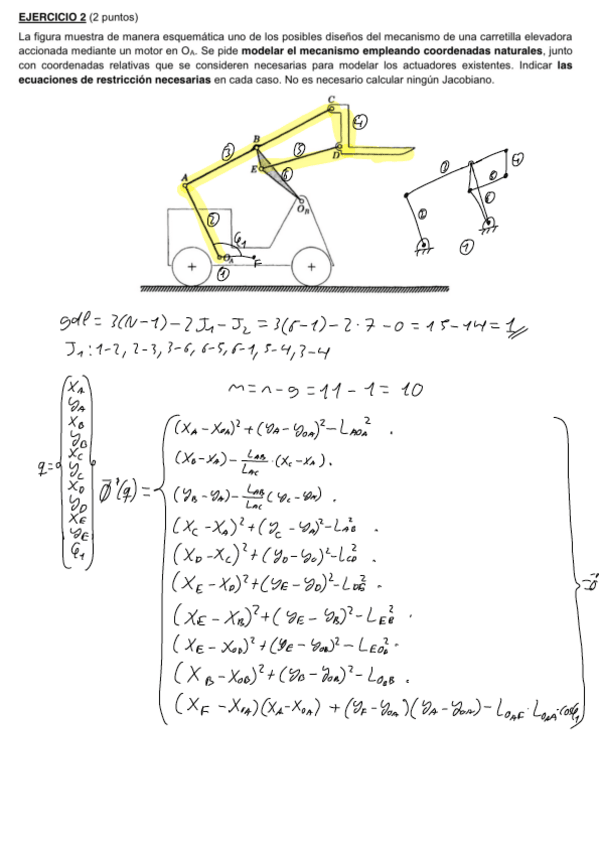 EJERCICIO 2 (2 puntos)
La figura muestra de manera esquemática uno de los posibles diseños del mecanismo de una carretilla elevadora
accionada mediante un motor en O_A. Se pide modelar el mecanismo empleando coordenadas naturales, junto
con coordenadas relativas que se consideren necesarias para modelar los actuadores existentes. Indicar las
ecuaciones de restricción necesarias en cada caso. No es necesario calcular ningún Jacobiano.
C
④
B
③
⑤
D
E
⑥
A
O_B
②
φ₁
O_A
F
①
gdl = 3(N-1)-2J₁-J₂ = 3(6-1)-2·7-0 = 15-14 = 1
J₁: 1-2, 2-3, 3-6, 6-5, 6-1, 5-4, 3-4
m = n - g = 11 - 1 = 10
q = {X_A y_A X_B y_B X_C y_C X_D y_D X_E y_E φ₁}
Φ(q) =
(X_A - X_OA)² + (y_A - y_OA)² - L_AOA²
(X_B - X_A) - L_AB/L_AC · (X_C - X_A)
(y_B - y_A) - L_AB/L_AC (y_C - y_A)
(X_C - X_A)² + (y_C - y_A)² - L_AB²
(X_D - X_C)² + (y_D - y_C)² - L_CD²
(X_E - X_D)² + (y_E - y_D)² - L_DE²
(X_E - X_B)² + (y_E - y_B)² - L_EB²
(X_E - X_OB)² + (y_E - y_OB)² - L_EOB²
(X_B - X_OB)² + (y_B - y_OB)² - L_OBB²
(X_F - X_OA)(X_A - X_OA) + (y_F - y_OA)(y_A - y_OA) - L_OAF · L_OAA · cosφ₁
= 0